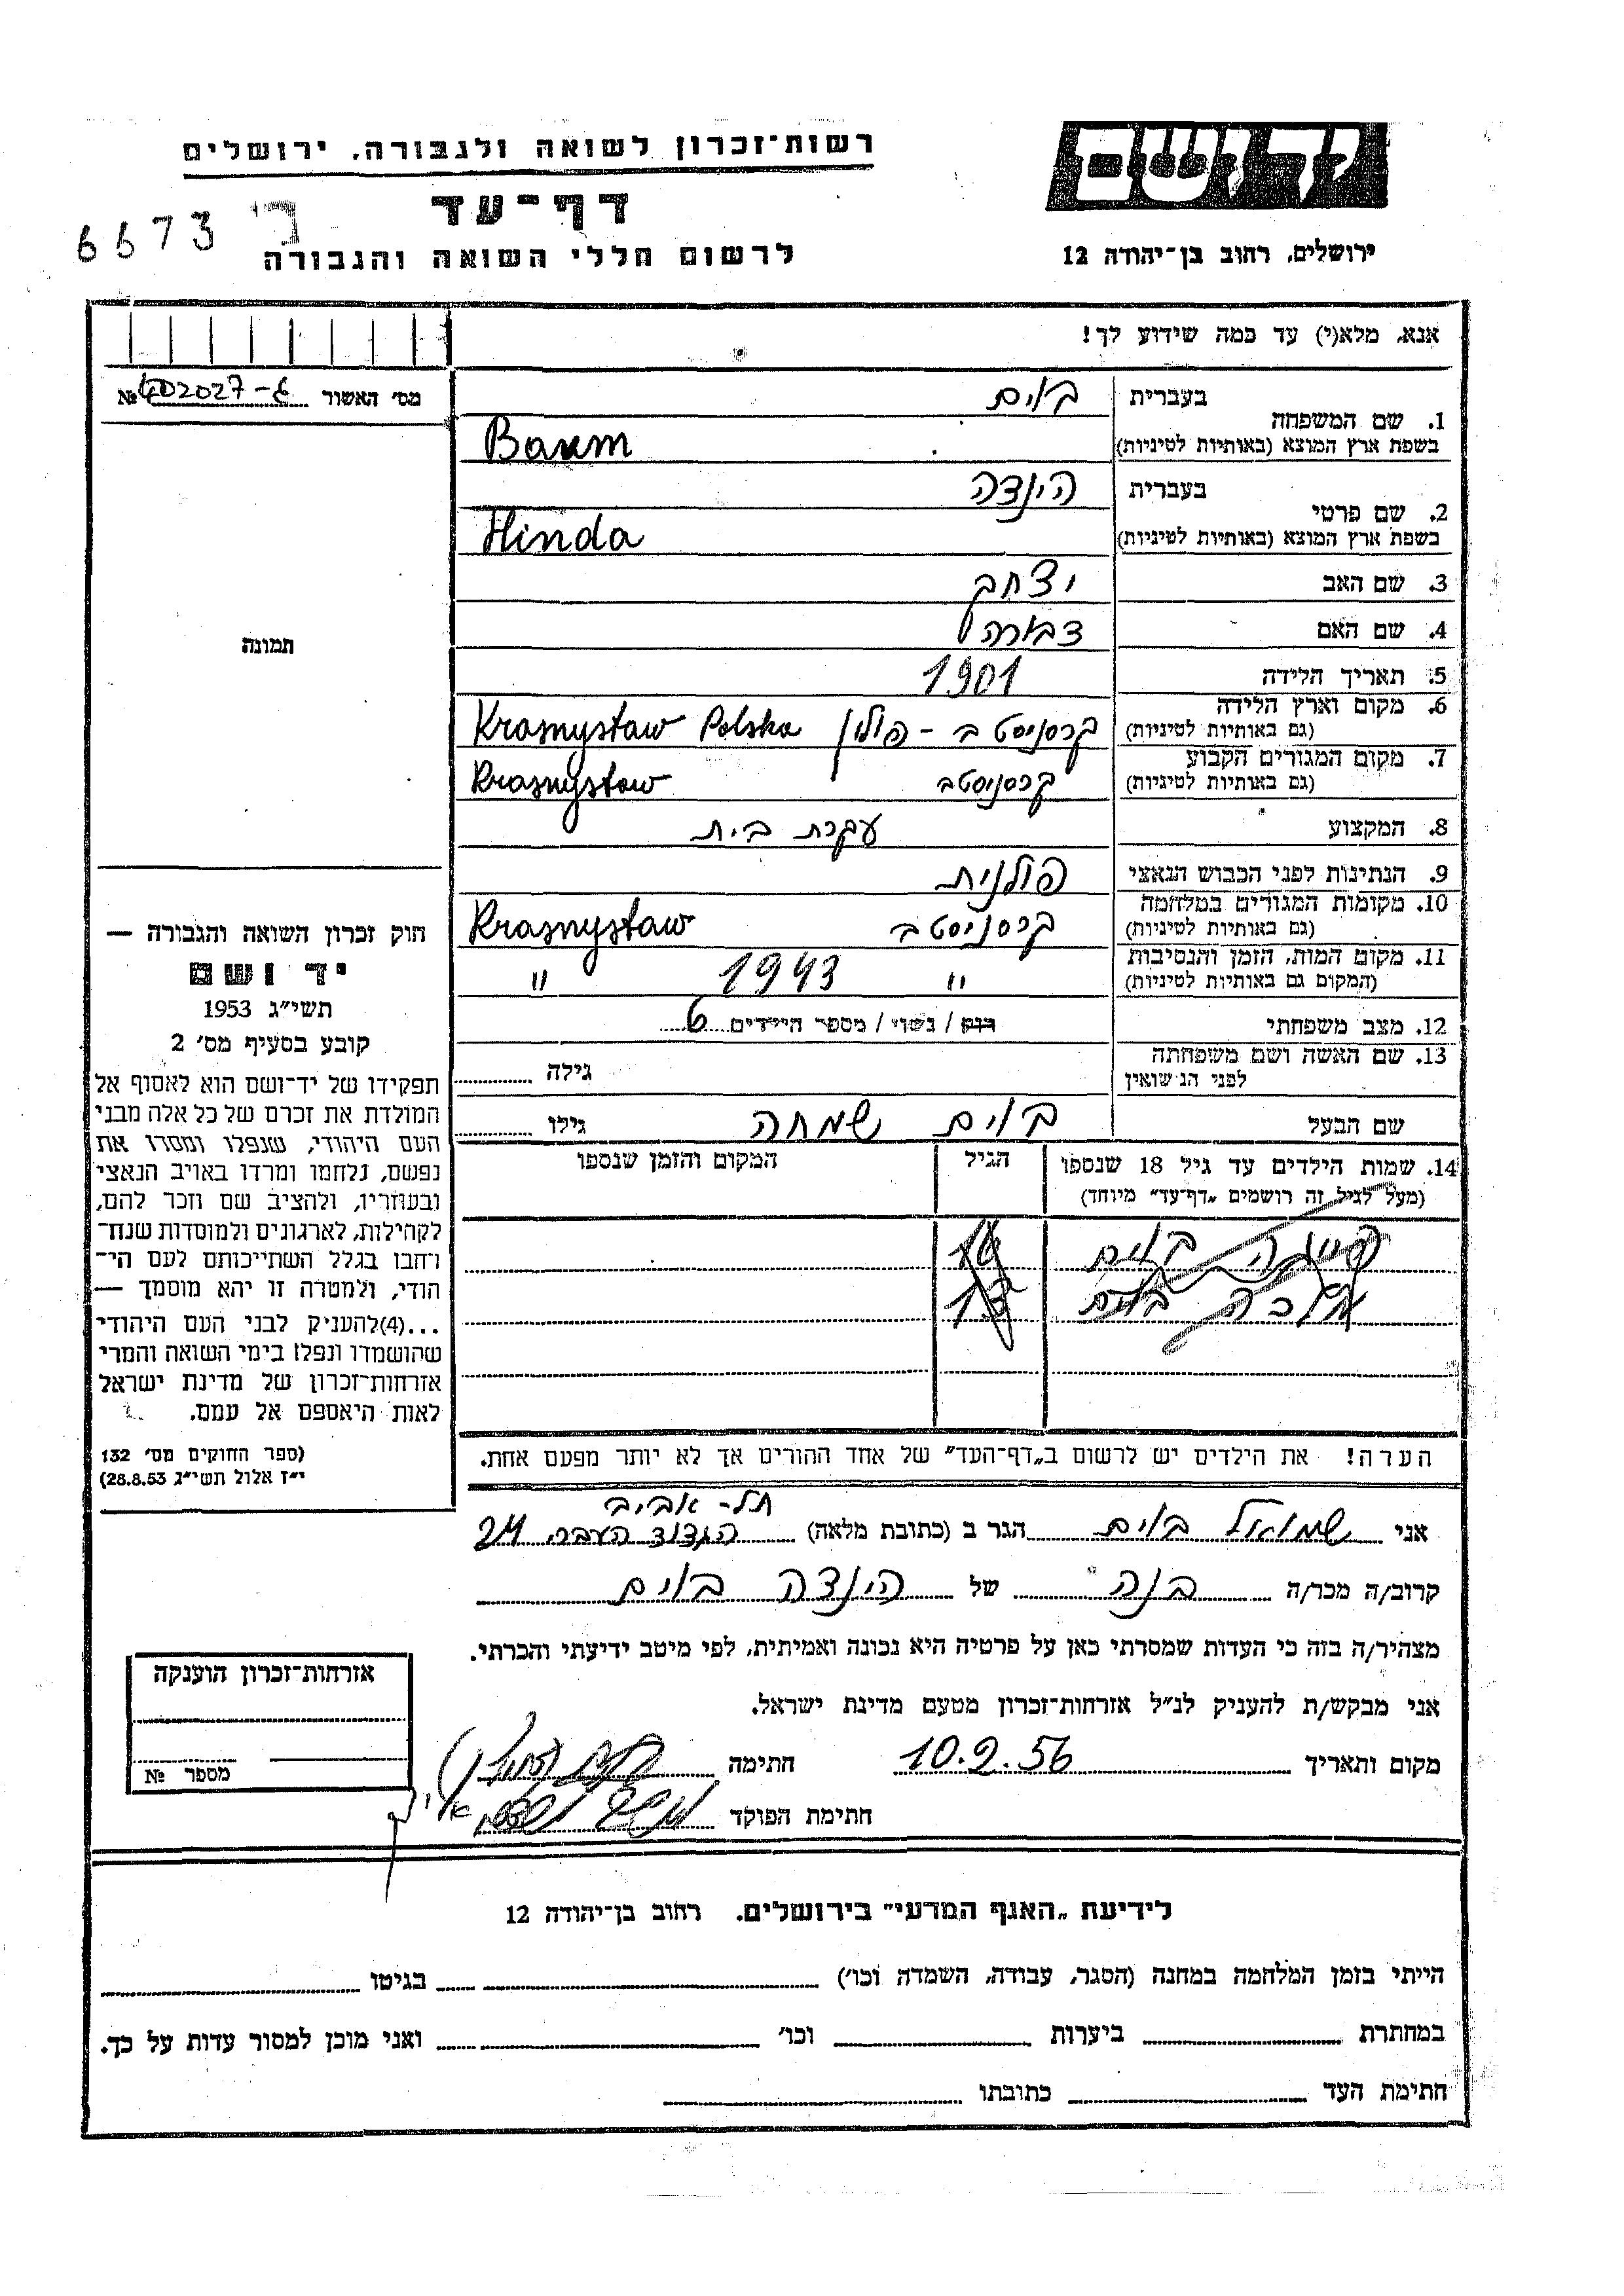 רשות־זכרון לשואה ולגבורה, ירושלים
יד ושם
דף־עד
6673 ב'
לרשום חללי השואה והגבורה
ירושלים, רחוב בן־יהודה 12
אנא, מלא(י) עד כמה שידוע לך!
מס' האשור №
1. שם המשפחה בעברית בוים
בשפת ארץ המוצא (באותיות לטיניות) Baum
2. שם פרטי בעברית הינדה
בשפת ארץ המוצא (באותיות לטיניות) Hinda
3. שם האב יצחק
4. שם האם דבורה
5. תאריך הלידה 1901
6. מקום וארץ הלידה קרסניסטב - פולין Krasnystaw Polska
(גם באותיות לטיניות)
7. מקום המגורים הקבוע קרסניסטב Krasnystaw
(גם באותיות לטיניות)
8. המקצוע עקרת בית
9. הנתינות לפני הכבוש הנאצי פולנית
10. מקומות המגורים במלחמה קרסניסטב Krasnystaw
(גם באותיות לטיניות)
11. מקום המות, הזמן והנסיבות " 1943 "
(המקום גם באותיות לטיניות)
12. מצב משפחתי רוק / נשוי / מספר הילדים 6
13. שם האשה ושם משפחתה גילה
לפני הנשואין
שם הבעל בוים שמחה גילו
14. שמות הילדים עד גיל 18 שנספו הגיל המקום והזמן שנספו
(מעל לגיל זה רושמים „דף־עד" מיוחד)
בוים
בוים 13
הערה! את הילדים יש לרשום ב„דף־העד" של אחד ההורים אך לא יותר מפעם אחת.
תמונה
חוק זכרון השואה והגבורה —
יד ושם
תשי"ג 1953
קובע בסעיף מס' 2
תפקידו של יד־ושם הוא לאסוף אל
המולדת את זכרם של כל אלה מבני
העם היהודי, שנפלו ומסרו את
נפשם, נלחמו ומרדו באויב הנאצי
ובעוזריו, ולהציב שם וזכר להם,
לקהילות, לארגונים ולמוסדות שנח־
רחבו בגלל השתייכותם לעם הי־
הודי, ולמטרה זו יהא מוסמך —
...(4)להעניק לבני העם היהודי
שהושמדו ונפלו בימי השואה והמרי
אזרחות־זכרון של מדינת ישראל
לאות היאספם אל עמם.
(ספר החוקים מס' 132
י"ז אלול תשי"ג 28.8.53)
תל-אביב
אני שמואל בוים הגר ב (כתובת מלאה) הגדוד העברי 24
קרוב/ה מכר/ה בנה של הינדה בוים
מצהיר/ה בזה כי העדות שמסרתי כאן על פרטיה היא נכונה ואמיתית, לפי מיטב ידיעתי והכרתי.
אני מבקש/ת להעניק לנ"ל אזרחות־זכרון מטעם מדינת ישראל.
מקום ותאריך 10.2.56 חתימה
חתימת הפוקד
אזרחות־זכרון הוענקה
מספר №
לידיעת „האגף המדעי" בירושלים, רחוב בן־יהודה 12
הייתי בזמן המלחמה במחנה (הסגר, עבודה, השמדה וכו') בגיטו
במחתרת ביערות וכו' ואני מוכן למסור עדות על כך.
חתימת העד כתובתו